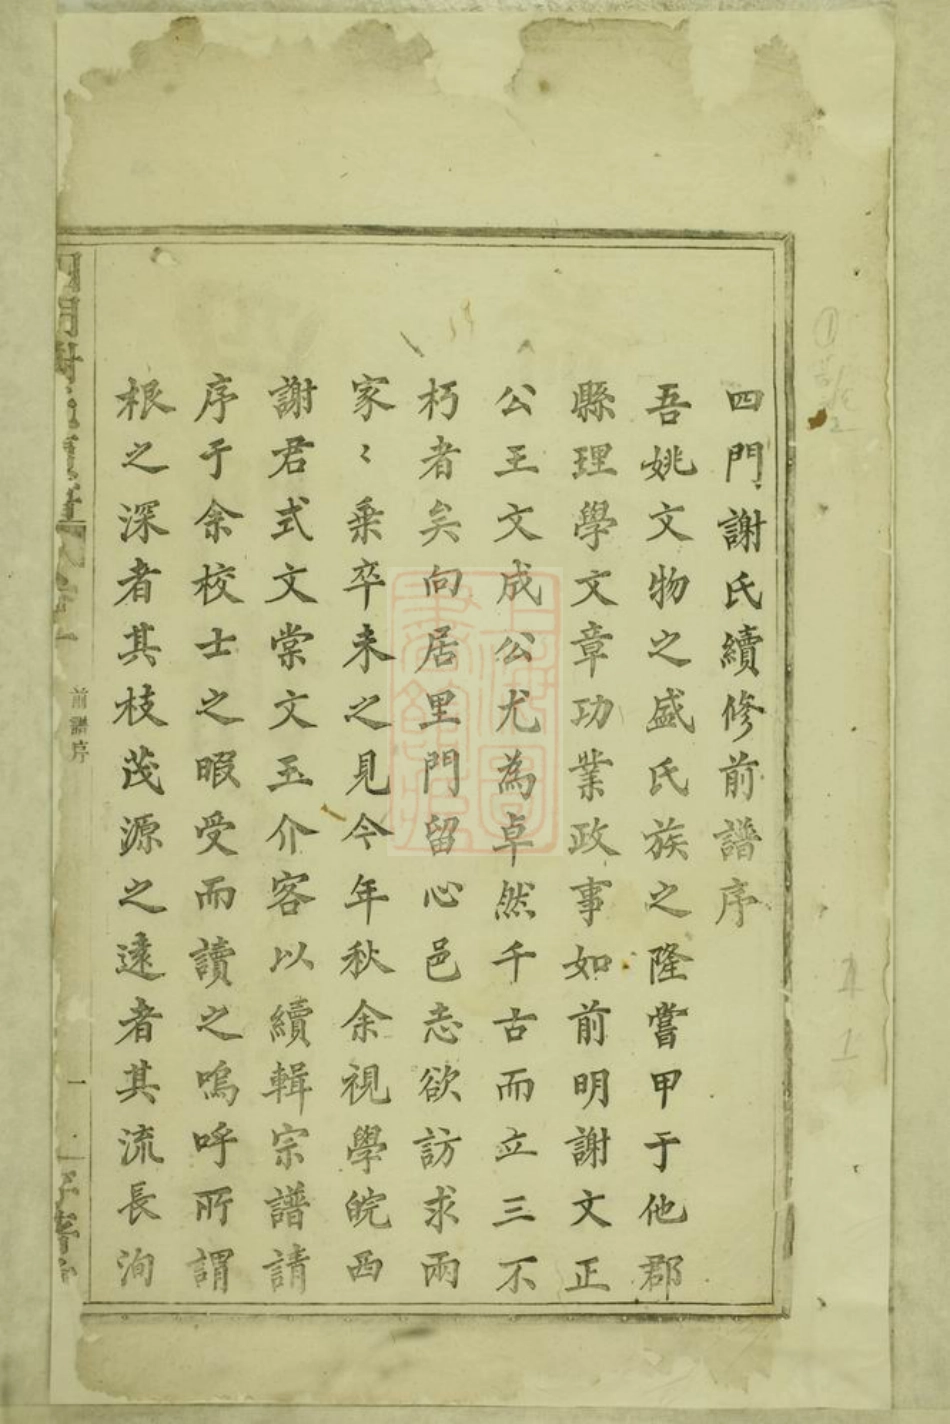 四門謝氏續修前譜序
吾姚文物之盛氏族之隆嘗甲于他郡
縣理學文章功業政事如前明謝文正
公王文成公尤為卓然千古而立三不
朽者矣向居里門留心邑志欲訪求兩
家〻乘卒未之見今年秋余視學皖西
謝君式文棠文玉介客以續輯宗譜請
序于余校士之暇受而讀之嗚呼所謂
根之深者其枝茂源之遠者其流長洵
前譜序
一